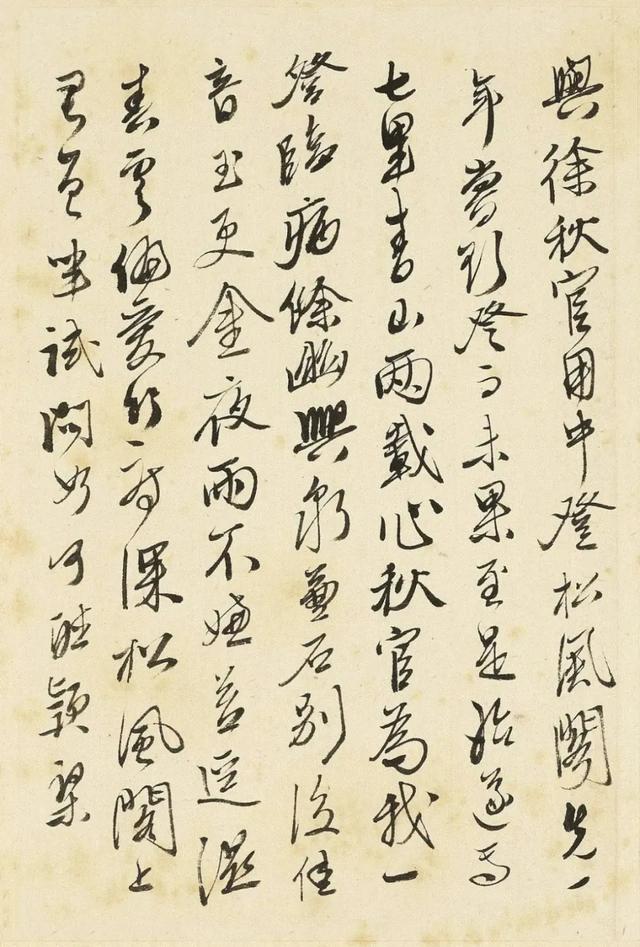 與徐秋官用中登松風閣先一
年嘗期登而未果至是始遂焉
七里青山兩載心秋官為我一
登臨病餘幽興泉兼石別後佳
音玉更金夜雨不嫌苔逕濕
春雲偏愛竹房深松風閣上
君試問如何聽穎琴